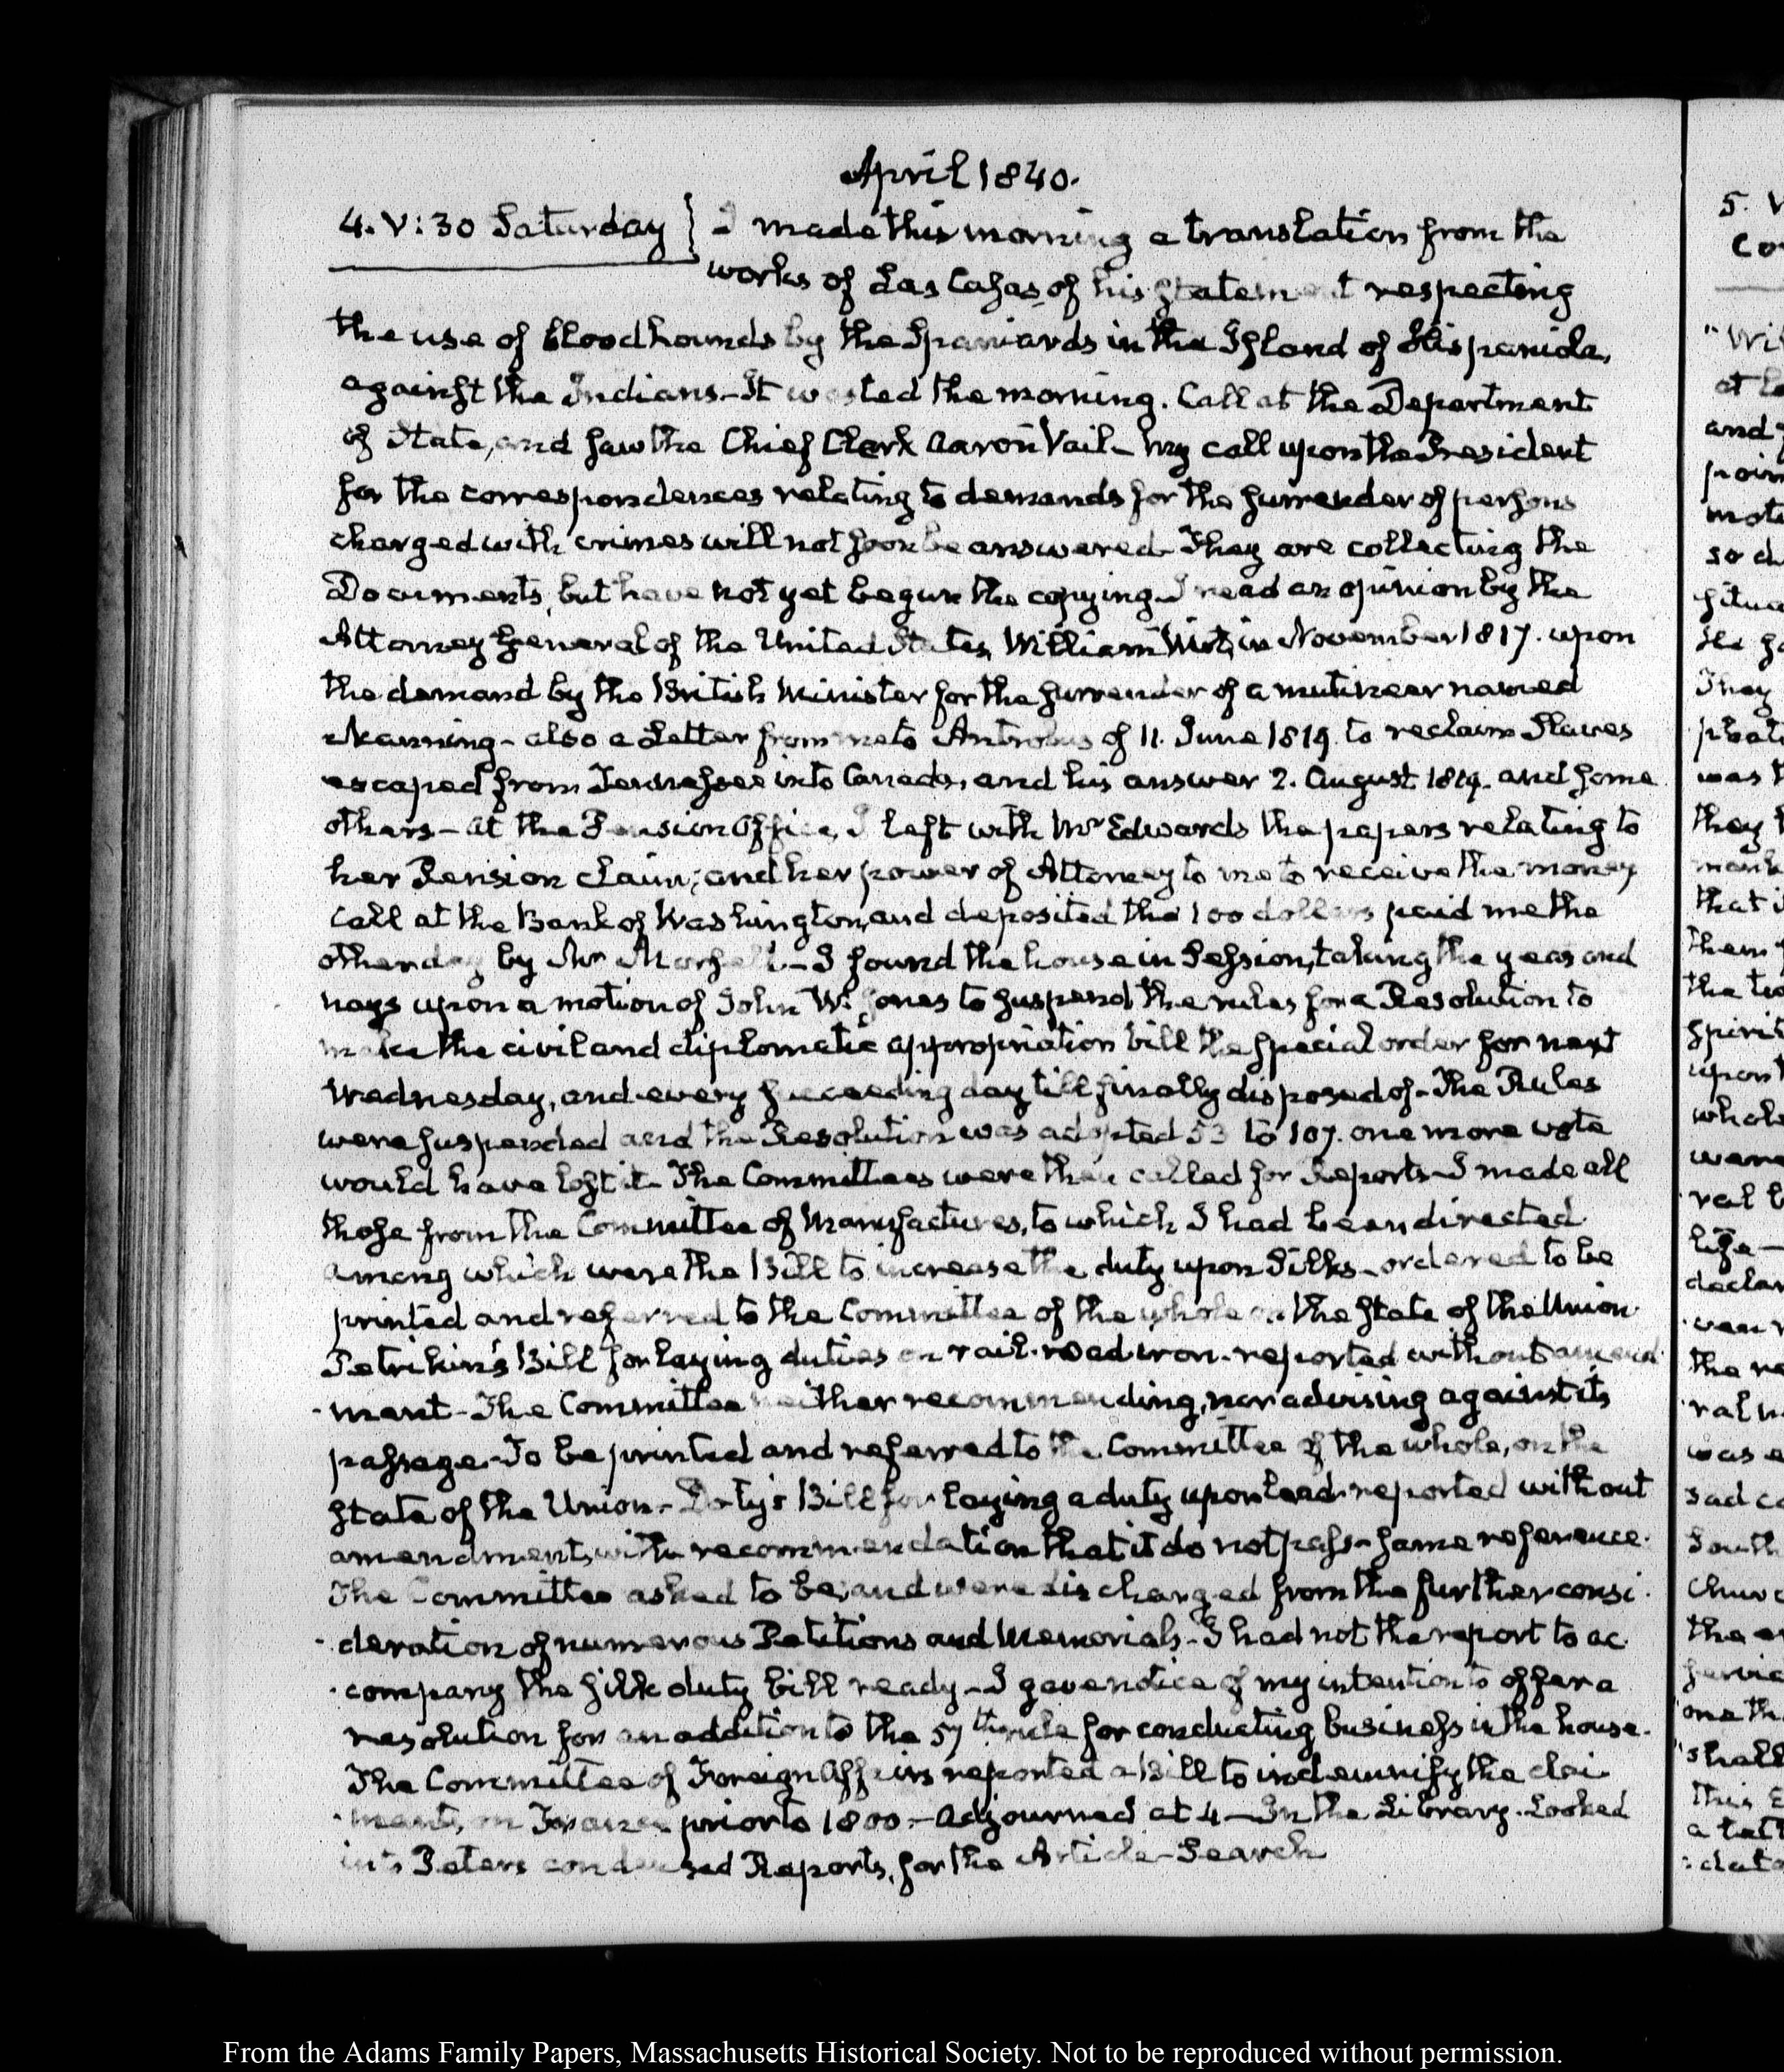 April 1840.
4. V:30 Saturday } I made this morning a translation from the
works of Las Casas, of his statement respecting
the use of bloodhounds by the Spaniards in the Island of Hispaniola,
against the Indians - It wasted the morning. Call at the Department
of State, and saw the Chief Clerk Aaron Vail - My call upon the President
for the correspondences relating to demands for the surrender of persons
charged with crimes will not soon be answered - They are collecting the
Documents, but have not yet begun the copying - I read an opinion by the
Attorney General of the United States, William Wirt, in November 1817. upon
the demand by the British Minister for the surrender of a mutineer named
Manning - also a Letter from me to Antrobus of 11. June 1819. to reclaim Slaves
escaped from Tennessee into Canada, and his answer 2. August 1819. and some
others - At the Pension Office, I left with Mr Edwards the papers relating to
her Pension claim; and her power of Attorney to me to receive the money
Call at the Bank of Washington, and deposited the 100 dollars paid me the
other day by Mr - I found the house in Session, taking the yeas and
nays upon a motion of John W. Jones to suspend the rules for a Resolution to
make the civil and diplomatic appropriation bill the special order for next
Wednesday, and every succeeding day till finally disposed of - The Rules
were suspended and the Resolution was adopted 53 to 107. one more vote
would have lost it - The Committees were then called for Reports - I made all
those from the Committee of Manufactures, to which I had been directed
among which were the Bill to increase the duty upon Silks - ordered to be
printed and referred to the Committee of the whole on the state of the Union
Petrikin's Bill for laying duties on rail-road iron - reported without amend
-ment - The Committee neither recommending, nor advising against its
passage - To be printed and referred to the Committee of the whole, on the
state of the Union - Doty's Bill for laying a duty upon lead - reported without
amendment, with recommendation that it do not pass - same reference.
The Committee asked to be, and were discharged from the further consi
-deration of numerous Petitions and Memorials - I had not the report to ac
-company the silk duty bill ready - I gave notice of my intention to offer a
resolution for an addition to the 57th rule for conducting business in the house.
The Committee of Foreign Affairs reported a Bill to indemnify the clai
-mants, on France prior to 1800. - Adjourned at 4 - In the Library. Looked
into Peters condensed Reports, for the Article - Search
From the Adams Family Papers, Massachusetts Historical Society. Not to be reproduced without permission.